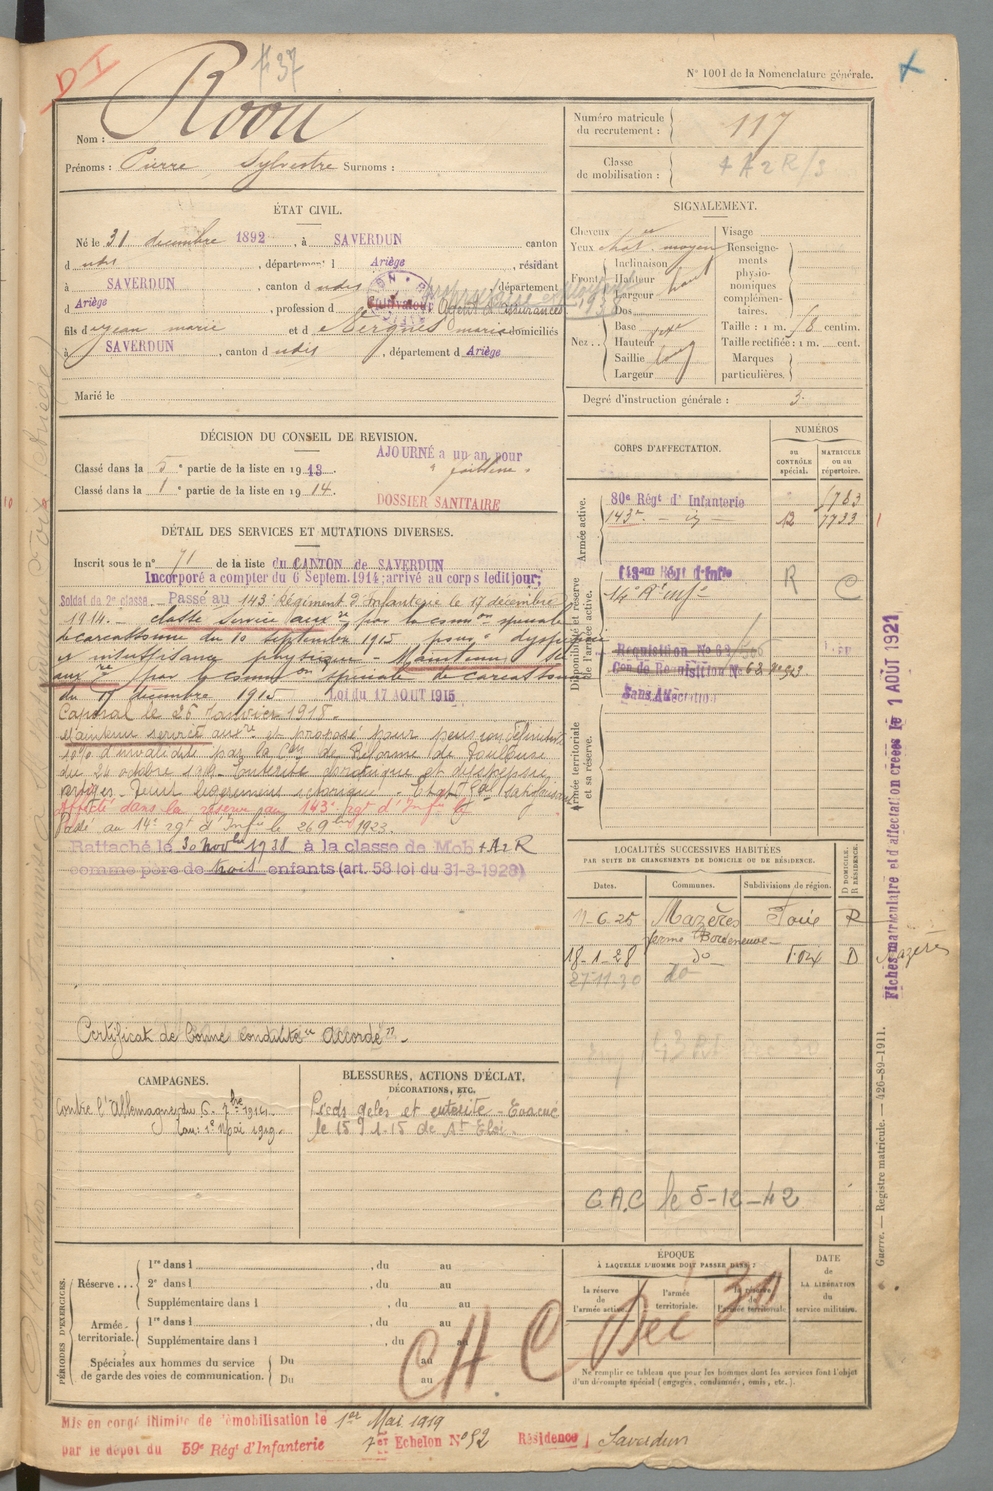 N° 1001 de la Nomenclature générale.
Nom : Roou
Prénoms : Pierre, Sylvestre Surnoms :
Numéro matricule du recrutement : 117
Classe de mobilisation : + A 2 R/3
ÉTAT CIVIL.
Né le 31 décembre 1892, à SAVERDUN canton
d udis, département d Ariège, résidant
à SAVERDUN, canton d udis, département
d Ariège, profession d Cultivateur Agent d'assurances
fils d Jean marie et d e Vergnes marie domiciliés
à SAVERDUN, canton d udis, département d Ariège
Marié le
SIGNALEMENT.
Cheveux
Yeux chat. moyen
Front : Inclinaison
Hauteur haut
Largeur
Nez : Dos
Base
Hauteur
Saillie long
Largeur
Visage
Renseignements physionomiques complémentaires.
Taille : 1 m. 58 centim.
Taille rectifiée : 1 m. cent.
Marques particulières.
Degré d'instruction générale : 3
DÉCISION DU CONSEIL DE REVISION.
Classé dans la 5e partie de la liste en 1913.
Classé dans la 1e partie de la liste en 1914.
AJOURNÉ a un an pour
faiblesse
DOSSIER SANITAIRE
DÉTAIL DES SERVICES ET MUTATIONS DIVERSES.
Inscrit sous le n° 71 de la liste du CANTON de SAVERDUN
Incorporé a compter du 6 Septem. 1914; arrivé au corps ledit jour;
Soldat de 2e classe. Passé au 143e Régiment d'Infanterie le 17 décembre
1914. classé service auxre par la comon spéciale
de carcassonne du 10 septembre 1915 pour dyspepsie
et insuffisance physique - Maintenu Sce
auxre par la comon spéciale de carcassonne
du 17 décembre 1915 Loi du 17 AOUT 1915
Caporal le 26 Janvier 1918.
Maintenu service auxre et proposé pour pension définitive
10% d'invalidité par la Con de Réforme de Toulouse
du 24 octobre 1919. Entérite chronique et dyspepsie
Etat Gal satisfaisant
Affecté dans la réserve au 143e rgt d'Infie
Passé au 14e rgt d'Infie le 26 9bre 1923.
Rattaché le 30 Novbre 1938 à la classe de Mob + A 2 R
comme père de trois enfants (art. 58 loi du 31-3-1928)
Certificat de bonne conduite "Accordé".
CORPS D'AFFECTATION.
NUMÉROS
au CONTRÔLE spécial.
MATRICULE ou au répertoire.
Armée active.
80e Régt d'Infanterie
143e - id - 12 7733
Disponibilité et réserve de l'armée active.
143eme Régt d'Infie R C
14e Rt infie
Réquisition No 63
Con de Réquisition No 63
Sans Affectation
Armée territoriale et sa réserve.
LOCALITÉS SUCCESSIVES HABITÉES
PAR SUITE DE CHANGEMENTS DE DOMICILE OU DE RÉSIDENCE.
Dates. Communes. Subdivisions de région. D DOMICILE. R RÉSIDENCE.
11-6-25 Mazères Foix R
ferme Bordeneuve
18-1-28 do Foix D Mazères
27-11-30 do
C.A.C le 5-12-42
CAMPAGNES.
Contre l'Allemagne du 6 7bre 1914
au 1er Mai 1919.
BLESSURES, ACTIONS D'ÉCLAT,
DÉCORATIONS, ETC.
Pieds gelés et entérite - Evacué
le 15-1-15 de St Eloi.
PÉRIODES D'EXERCICES.
Réserve
1re dans l , du au
2e dans l , du au
Supplémentaire dans l , du au
Armée territoriale.
1re dans l , du au
Supplémentaire dans l , du au
Spéciales aux hommes du service de garde des voies de communication.
Du au
Du au
ÉPOQUE
À LAQUELLE L'HOMME DOIT PASSER DANS :
la réserve de l'armée active. l'armée territoriale. la réserve de l'armée territoriale.
DATE de LA LIBÉRATION du service militaire.
C H. C Dec 30
Ne remplir ce tableau que pour les hommes dont les services font l'objet d'un décompte spécial (engagés, condamnés, omis, etc.).
Mis en congé illimité de démobilisation le 1er Mai 1919
par le dépôt du 59e Régt d'Infanterie 7er Echelon No 92 Résidence Saverdun
Fiches matriculaire et d'affectation créées le 1 AOUT 1921
Guerre. — Registre matricule. — 426-89-1911.